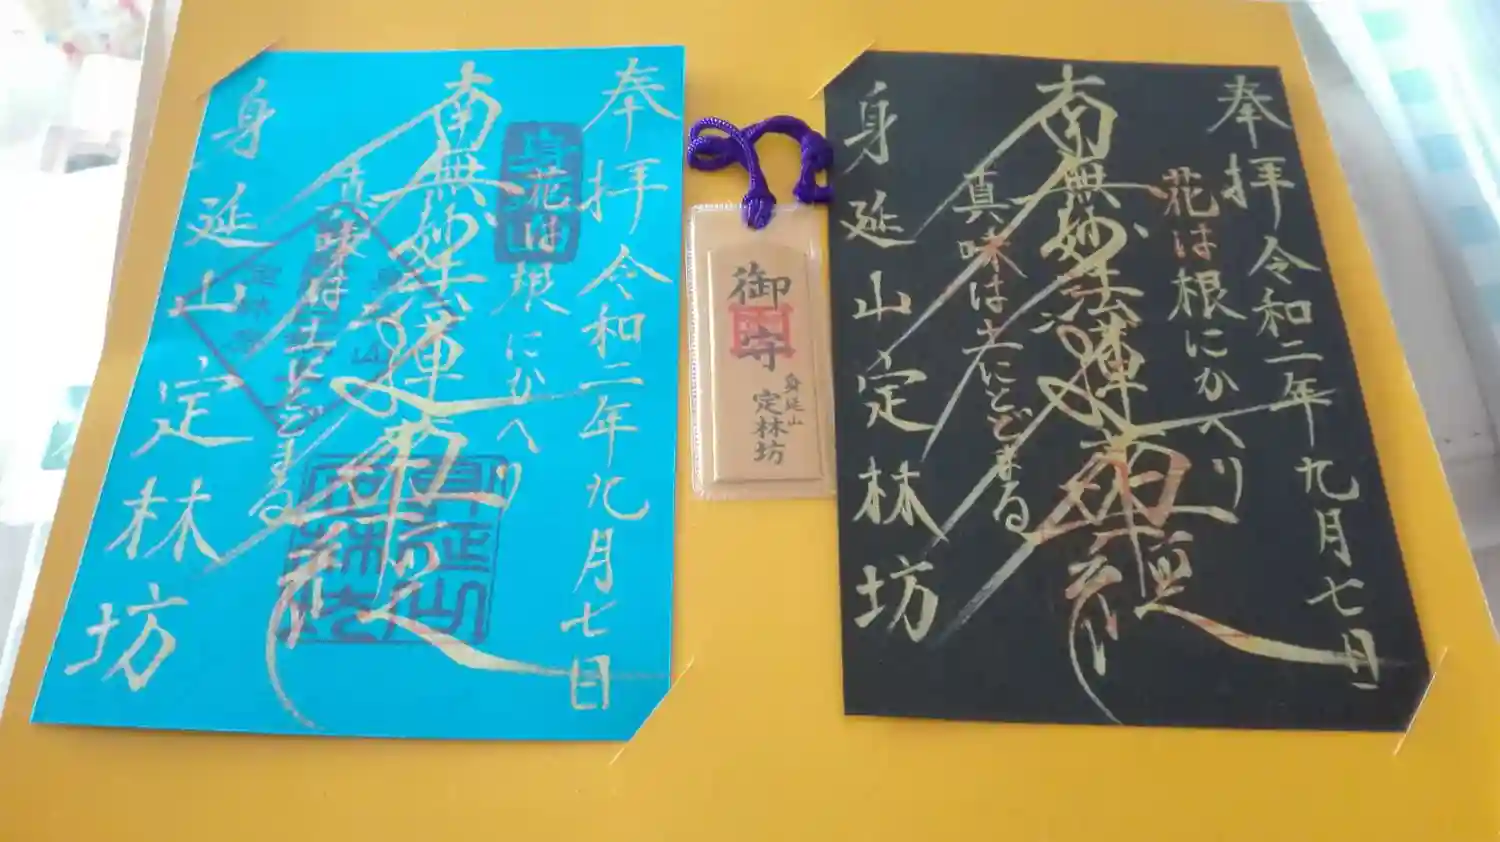 奉拝 令和二年九月七日
花は根にかへり
南無妙法蓮華経
真味は土にとどまる
身延山 定林坊
身延山
定林坊
御守
身延山
定林坊
奉拝 令和二年九月七日
花は根にかへり
南無妙法蓮華経
真味は土にとどまる
身延山 定林坊